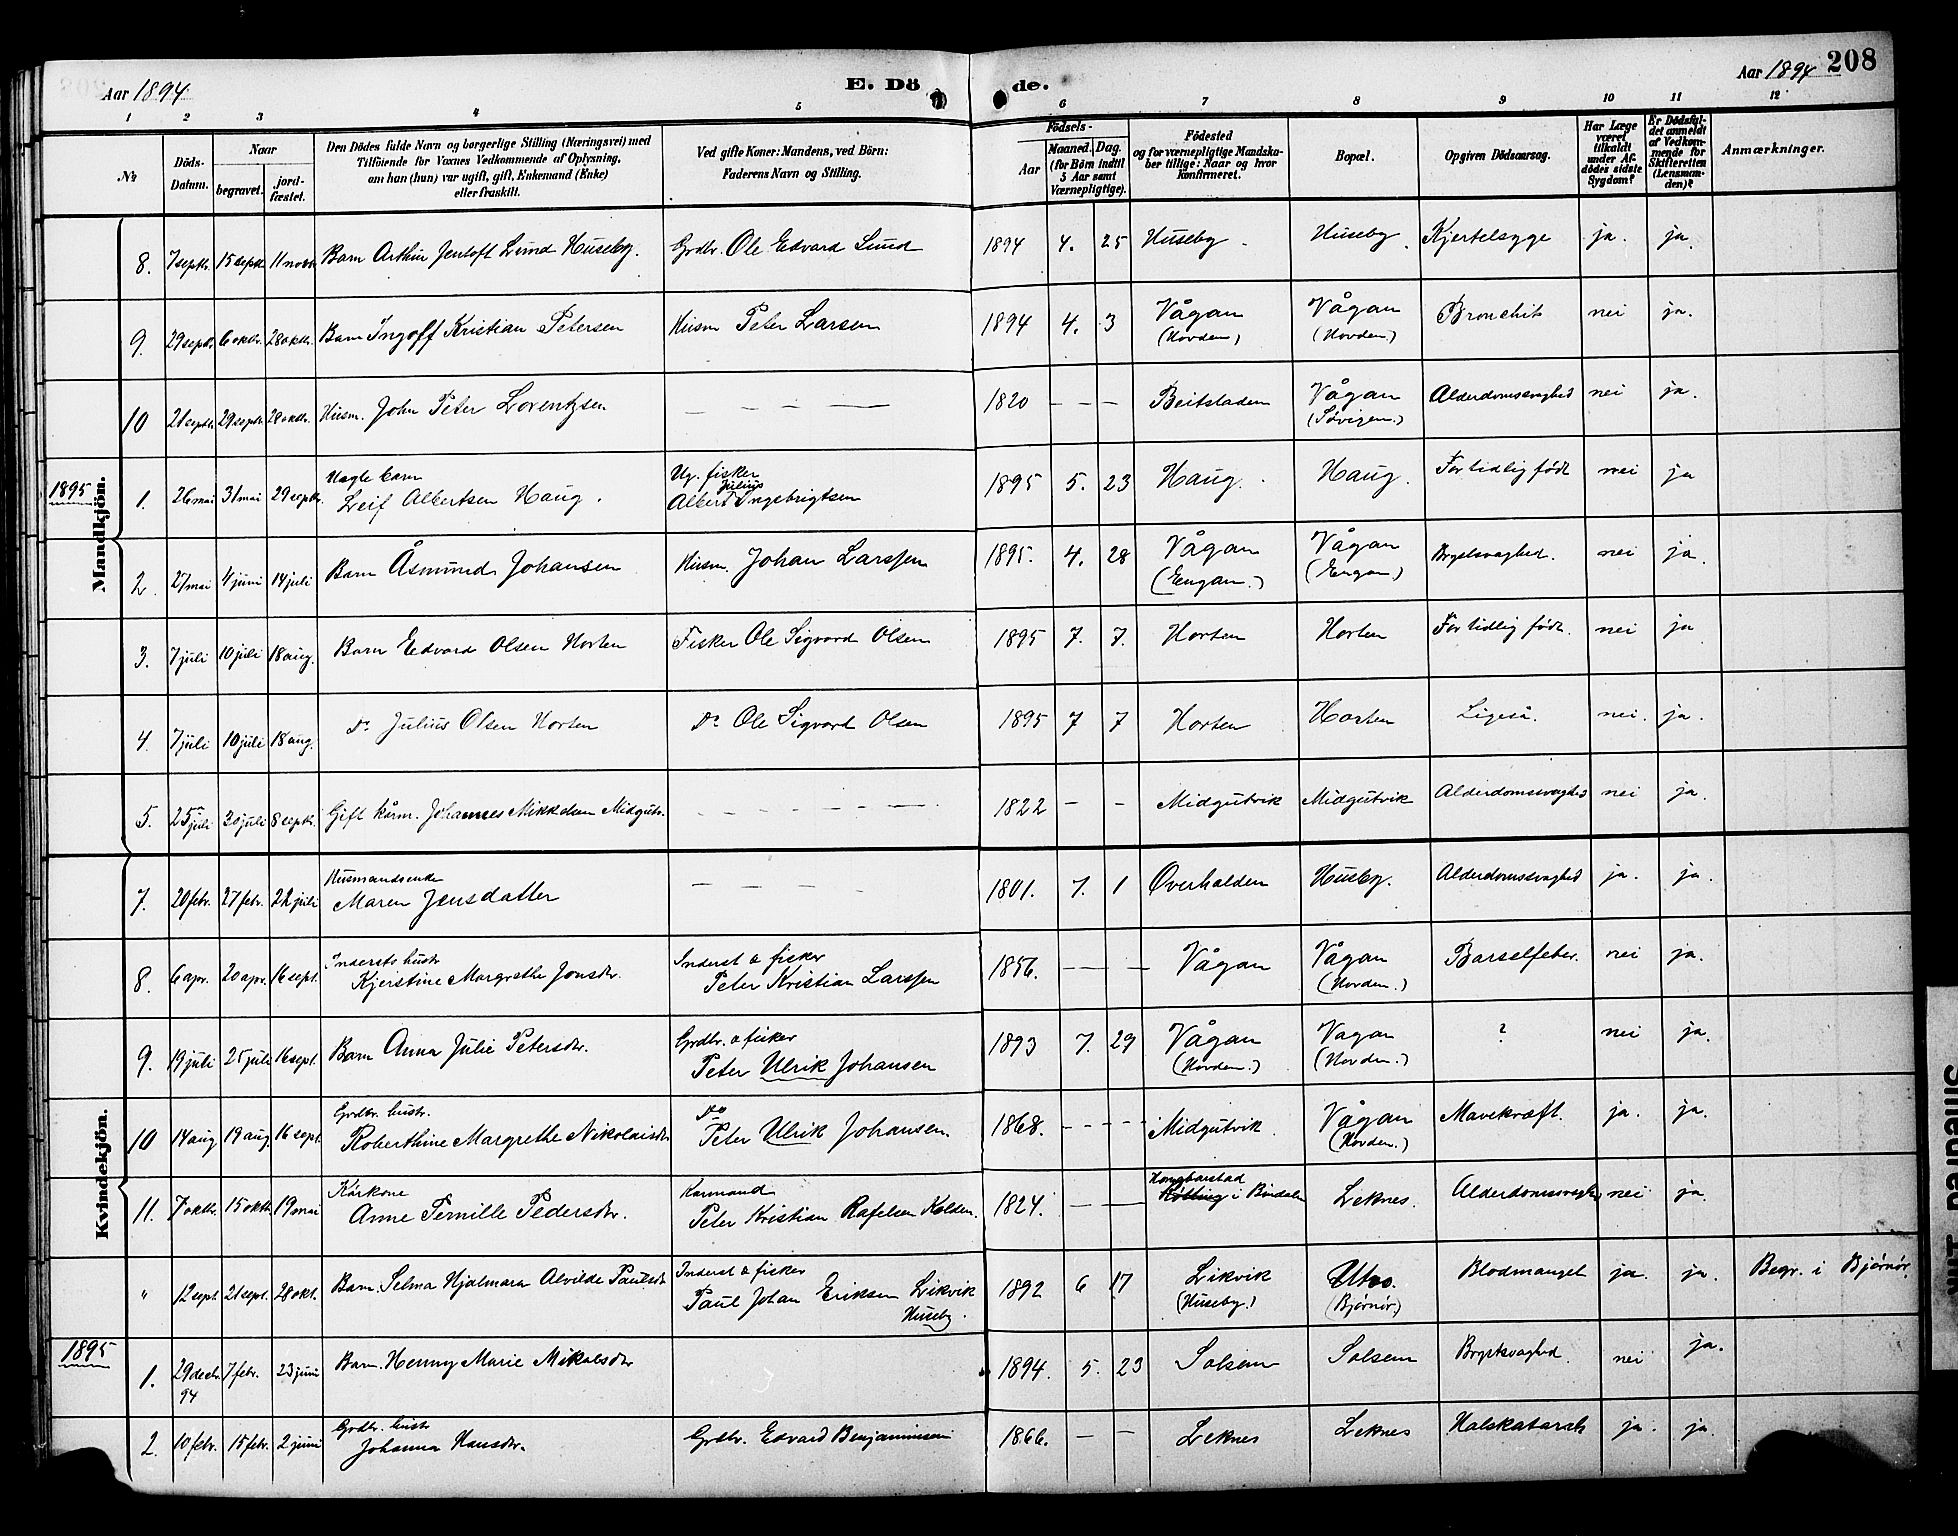 Aar 1894.
E. Dö de.
Aar 1894 208
1 2 3 4 5 6 7 8 9 10 11 12
№
Döds-Datum.
Naar
begravet.
jord-fæstet.
Den Dödes fulde Navn og borgerlige Stilling (Næringsvei) med
Tilföiende for Voxnes Vedkommende af Oplysning,
om han (hun) var ugift, gift, Enkemand (Enke)
eller fraskilt.
Ved gifte Koner: Mandens, ved Börn:
Faderens Navn og Stilling.
Födsels-
Aar
Maaned. Dag.
(for Börn indtil
3 Aar samt
Værnepligtige).
Födested
og for værnepligtige Mandska-
ber tillige: Naar og hvor
konfirmeret.
Bopæl.
Opgiven Dödsaarsag.
Har Læge
været
tilkaldt
under Af-
dödes sidste
Sygdom?
Er Dödsfal-
det anmeldt
af Vedkom-
mende for
Skifteretten
(Lensman-
den)?
Anmærkninger.
Mandkjön.
8. 7 septbr. 15 septbr 11 novbr Barn Arthur Jentoft Lund Huseby. Grdbr. Ole Edvard Lund 1894 4. 25 Huseby. Huseby. Kjertelsyge ja. ja.
9. 29 septbr. 6 oktbr. 28 oktbr. Barn Ingoff Kristian Petersen Husm Peter Larsen 1894 4. 3 Vågan (Hovden) Vågan (Hovden.) Bronchit nei ja.
10 21 septbr. 29 septbr. 28 oktbr. Husm. John Peter Lorentzsen — — — — — 1820 — — — Beitstaden Vågan (Sövigen.) Alderdomssvaghed nei ja.
1895
1. 26 mai 31 mai 29 septbr. Uægte barn Leif Albertsen Haug. Ug. fisker Albert Julius Ingebrigtsen 1895 5. 23 Haug. Haug. For tidlig födt nei ja
2. 27 mai 4 juni 14 juli Barn Åsmund Johansen Husm. Johan Larssen 1895. 4. 28 Vågan (Engan.) Vågan (Engan) Brystsvaghed. nei ja.
3. 7 juli 10 juli 18 aug. Barn Edvard Olsen Horten Fisker Ole Sigvard Olsen 1895 7. 7. Horten Horten For tidlig födt. nei ja
4. 7 juli 10 juli 18 aug. do Julius Olsen Horten do Ole Sigvard Olsen 1895 7 7 Horten Horten Ligeså. nei. ja.
5. 25 juli 30 juli 8 septbr. Gift kårm. Johannes Mikkelsen Midgutv. — — — — — 1822 — — Midgutvik Midgutvik Alderdomssvaghed nei ja.
Kvindekjön.
7. 20 febr. 27 febr. 22 juli Husmandsenke Maren Jensdatter — — — — 1801. 7. 1 Overhalden Huseby. Alderdomssvaghed ja. ja.
8. 6 apr. 20 apr. 16 sept. Indersts hustr Kjerstine Margrethe Jonsdtr. Inderst & fisker Peter Kristian Larssen 1856. — — — Vågan Vågan (Hovden.) Barselfeber. nei ja.
9. 19 juli 25 juli 16 sept. Barn Anna Julie Petersdtr. Grdbr. & fisker Peter Ulrik Johansen 1893 7. 29 Vågan (Hovden.) Vagan (Hovden.) ? nei ja.
10 14 aug 19 aug. 16 sept. Grdbr. hustr. Roberthine Margrethe Nikolaisdtr do Peter Ulrik Johansen. 1868. - - - - Midgutvik. Vågan (Hovden.) Mavekræft. ja. ja.
11. 7 oktbr. 15 oktbr. 19 mai Kårkone Anne Pernille Pedersdtr. Karmand Peter Kristian Rafelsen Kolden. 1824. — — i Bindalen Leknes. Alderdomssvaghed nei ja.
" 12 sept. 21 sept. 28 okt. Barn Selma Hjalmara Alvilde Paulsdtr Inderst & fisker Paul Johan Eriksen Likvik Huseby. 1892 6 17 Likvik (Huseby.) Utvo. (Bjørnör) Blodmangel ja. ja. Begr. i Bjørnör.
1895
1. 29 decbr. 94 7 febr. 23 juni Barn. Henny Marie Mikalsdtr 1894. 5. 23 Solsem Solsem Brystsvaghed. nei ja.
2. 10 febr. 15 febr. 2 juni Grdbr. hustr Johanna Hansdtr. Grdbr. Edvard Benjaminsen 1866. — — Leknes Leknes Halskatarrh ja. ja.